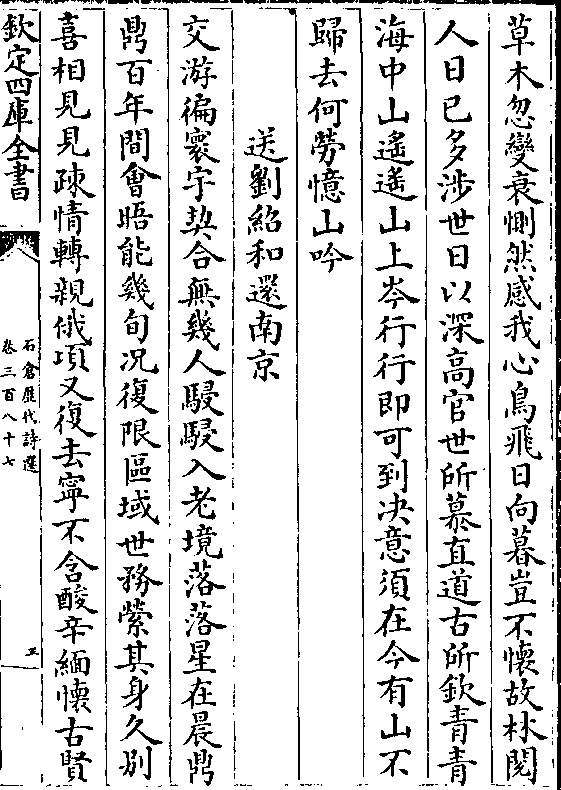 草木忽變衰惻然感我心鳥飛日向暮豈不懷故林閱
人日已多涉世日以深高官世所慕直道古所欽青青
海中山遙遙山上岑行行即可到决意須在今有山不
歸去何勞憶山吟
送劉紹和還南京
交游徧寰宇契合無幾人駸駸入老境落落星在晨鼎
鼎百年間會晤能幾旬况復限區域世務縈其身久别
喜相見見疎情轉親俄頃又復去寧不含酸辛緬懷古賢
欽定四庫全書
石倉歷代詩選
卷三百八十七
五